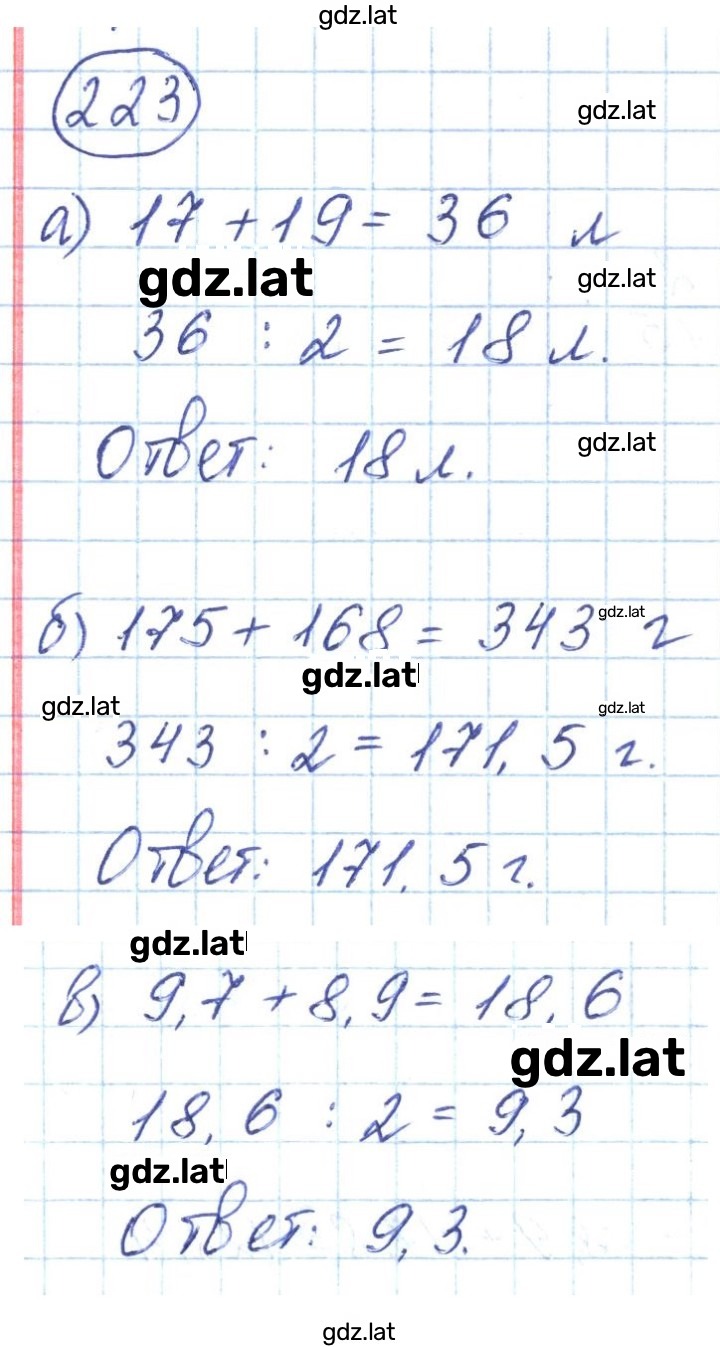 gdz.lat
223
gdz.lat
а) 17 + 19 = 36 л
gdz.lat
gdz.lat
36 : 2 = 18 л.
Ответ: 18 л.
gdz.lat
б) 175 + 168 = 343 г
gdz.lat
gdz.lat
gdz.lat
gdz.lat
343 : 2 = 171,5 г.
Ответ: 171,5 г.
gdz.lat
в) 9,7 + 8,9 = 18,6
gdz.lat
18,6 : 2 = 9,3
gdz.lat
Ответ: 9,3.
gdz.lat